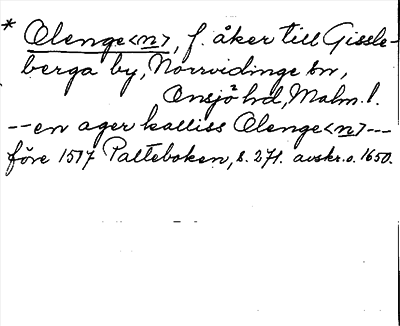 * Olenge<n>, f. åker till Gissle-
berga by, Norrvidinge sn,
Onsjö hd, Malm. l.
-- en ager kalliss Olenge<n> ---
före 1517 Palteboken, s. 271. avskr. o. 1650.